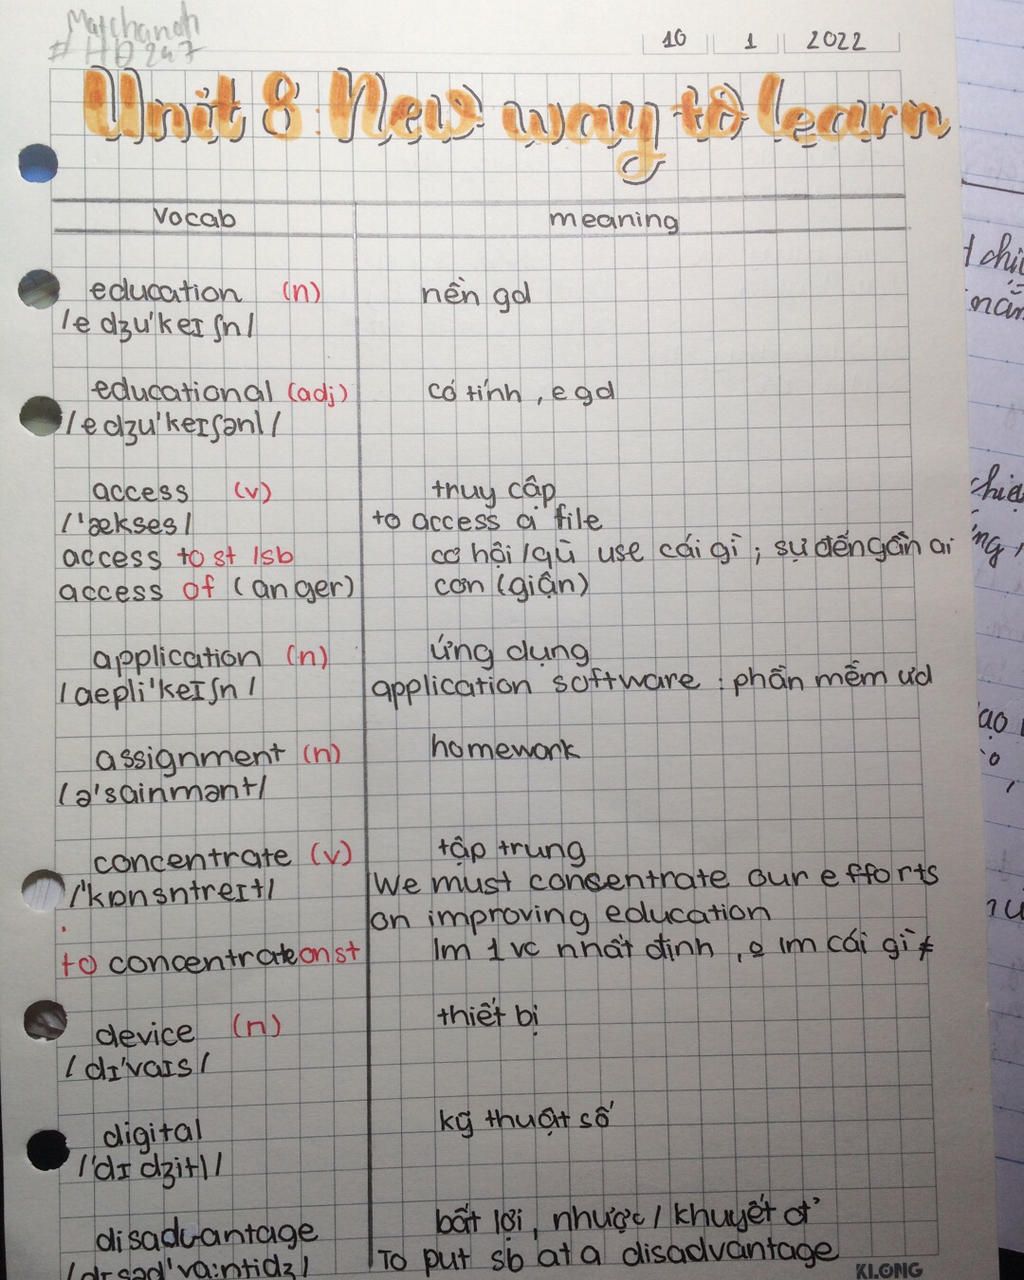 Matchanoh
#HD247
10 1 2022
Unit 8: New way to learn
vocab meaning
education (n) nền gd
/e dʒu'keɪʃn/
educational (adj) có tính , e gd
/e dʒu'keɪʃənl/
access (v) truy cập
/'ækses/ to access a file
access to st /sb cơ hội/qù use cái gì ; sự đến gần ai
access of (anger) cơn (giận)
application (n) ứng dụng
/aepli'keɪʃn/ application software : phần mềm ưd
assignment (n) homework
/ə'sainmənt/
concentrate (v) tập trung
/'kɒnsntreɪt/ We must concentrate our efforts
on improving education
to concentrate on st lm 1 vc nhất định , lm cái gì ≠
device (n) thiết bị
/dɪ'vaɪs/
digital kỹ thuật số
/'dɪ dʒitl/
disadvantage bất lợi, nhược/ khuyết đ'
/dɪsəd'va:ntidʒ/ To put sb at a disadvantage
KLONG